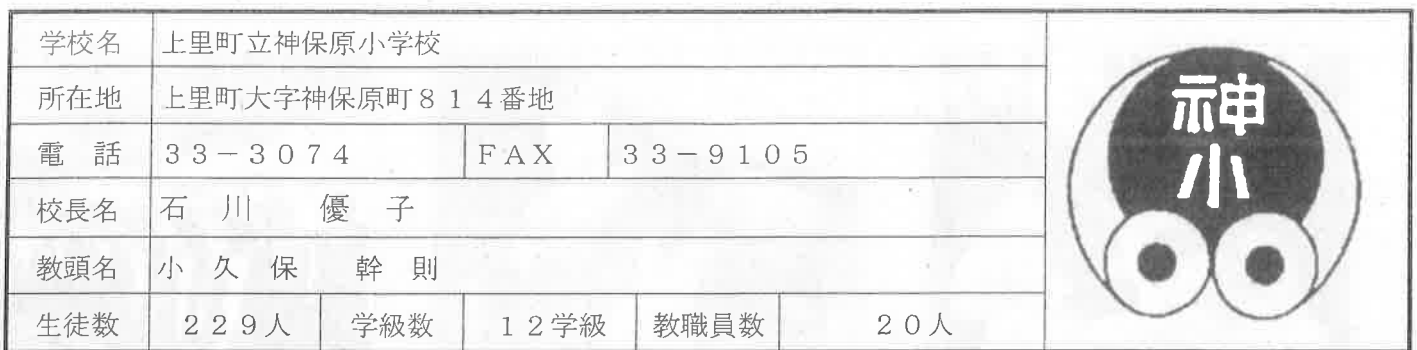 学校名 上里町立神保原小学校
所在地 上里町大字神保原町８１４番地
電　話 ３３－３０７４ ＦＡＸ ３３－９１０５
校長名 石　川　　優　子
教頭名 小　久　保　　幹　則
生徒数 ２２９人 学級数 １２学級 教職員数 ２０人
神
小